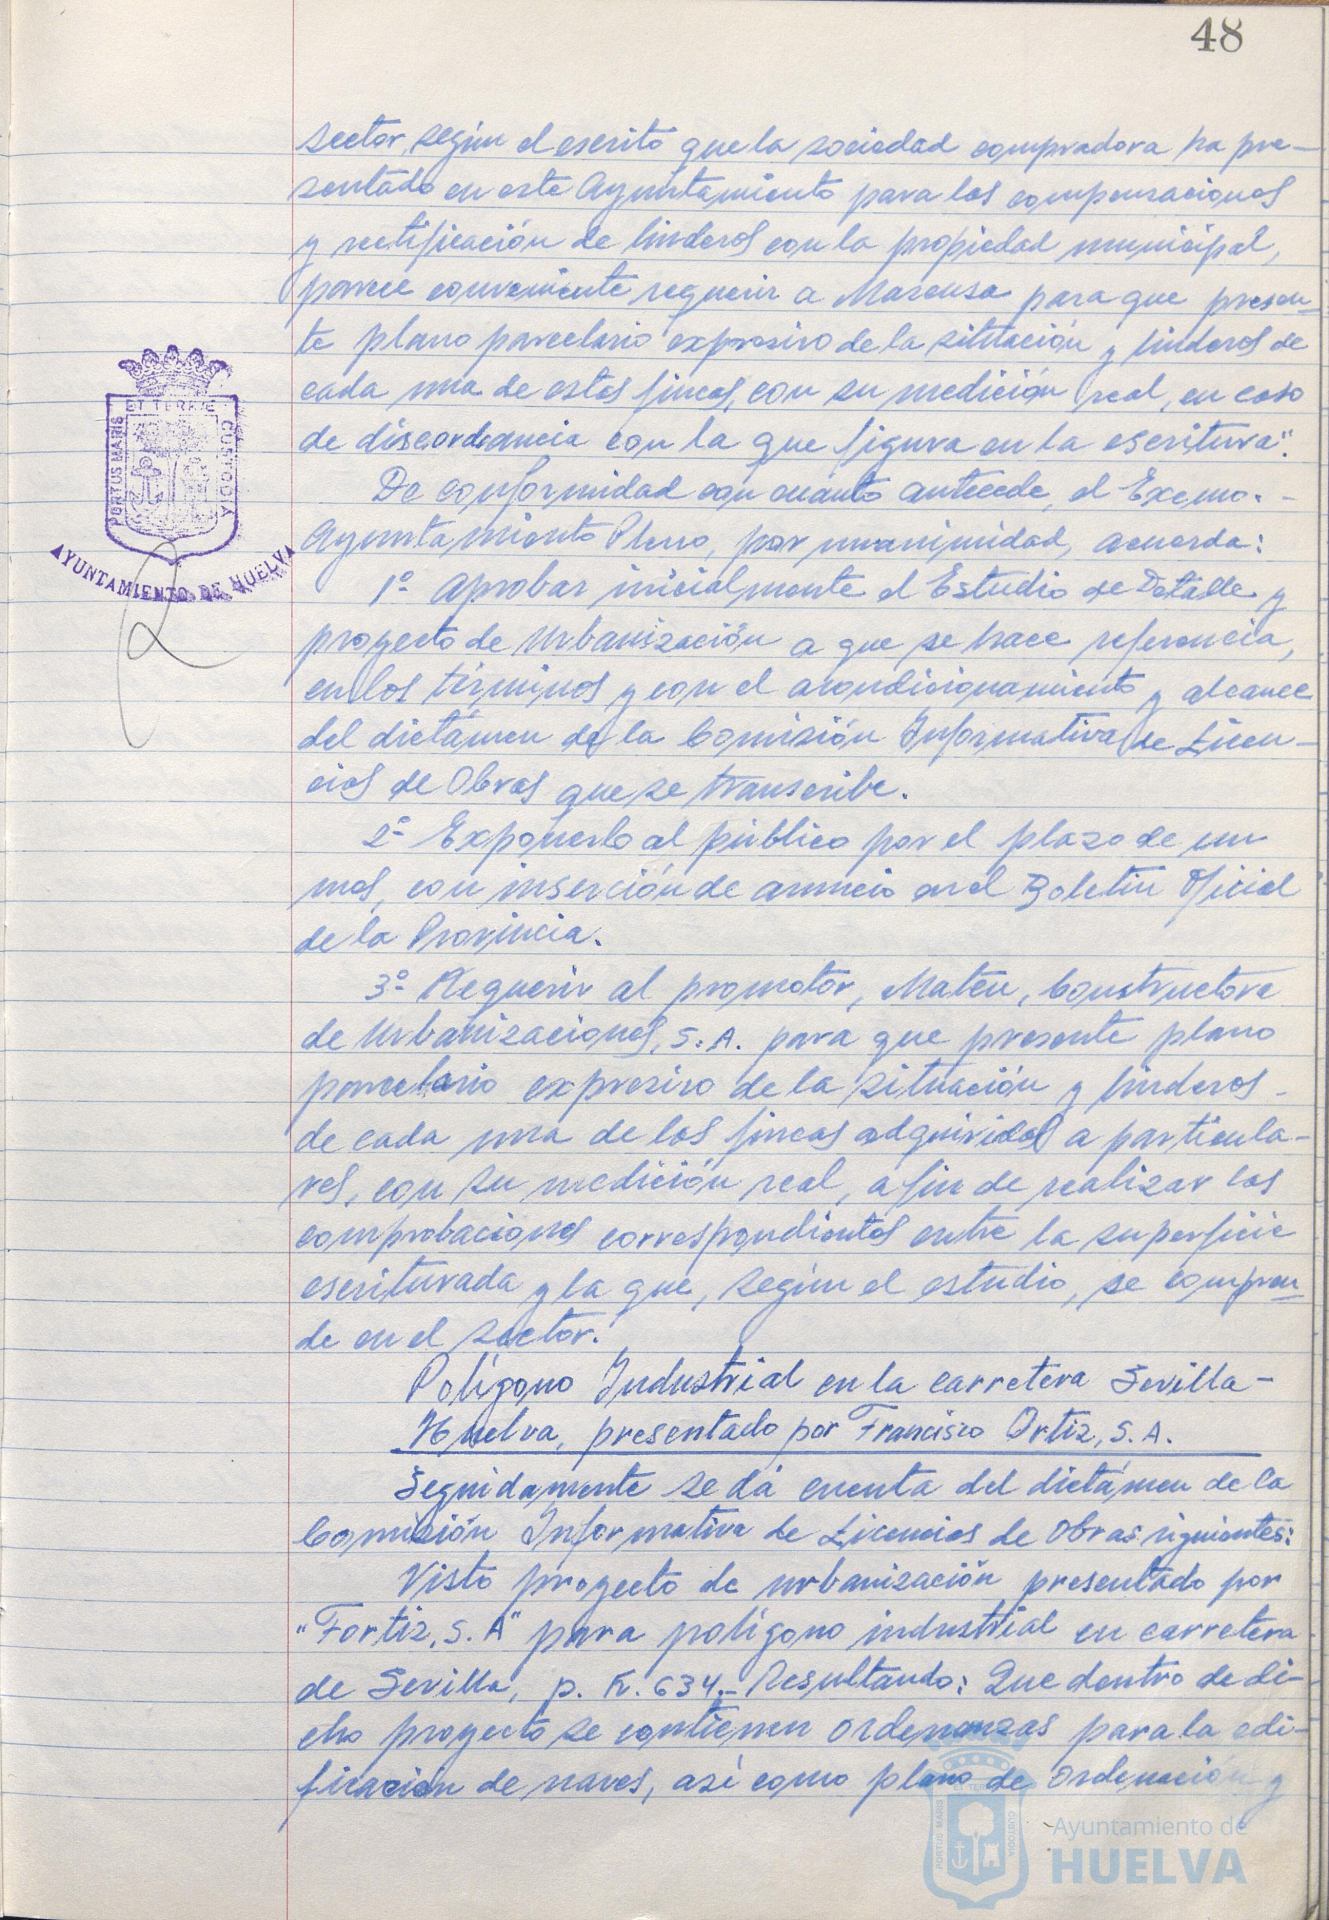 48
sector, según el escrito que la sociedad compradora ha pre-
sentado en este Ayuntamiento para las compensaciones
y rectificación de linderos con la propiedad municipal,
parece conveniente requerir a Macousa para que presen-
te plano parcelario expresivo de la situación y linderos de
cada una de estas fincas, con su medición real, en caso
de discordancia con la que figura en la escritura".
De conformidad con cuanto antecede, el Excmo. -
Ayuntamiento Pleno, por unanimidad, acuerda:
1º Aprobar inicialmente el Estudio de Detalle y
proyecto de Urbanización a que se hace referencia,
en los términos y con el acondicionamiento y alcance
del dictámen de la Comisión Informativa de Licen-
cias de Obras que se transcribe.
2º Exponerlo al público por el plazo de un
mes, con inserción de anuncio en el Boletín Oficial
de la Provincia.
3º Requerir al promotor, Mateu, Constructora
de Urbanizaciones, S.A. para que presente plano
parcelario expresivo de la situación y linderos -
de cada una de las fincas adquiridas a particula-
res, con su medición real, a fin de realizar las
comprobaciones correspondientes entre la superficie
escriturada y la que, según el estudio, se compren-
de en el sector.
Polígono Industrial en la carretera Sevilla-
Huelva, presentado por Francisco Ortiz, S.A.
Seguidamente se dá cuenta del dictámen de la
Comisión Informativa de Licencias de Obras siguientes:
Visto proyecto de urbanización presentado por
"Fortiz, S.A" para polígono industrial en carretera
de Sevilla, p. K. 634.- Resultando: Que dentro de di-
cho proyecto se contienen ordenanzas para la edi-
ficación de naves, así como plano de ordenación y
PORTUS MARIS ET TERRAE CUSTODIA
AYUNTAMIENTO DE HUELVA
PORTUS MARIS ET TERRAE CUSTODIA
Ayuntamiento de
HUELVA